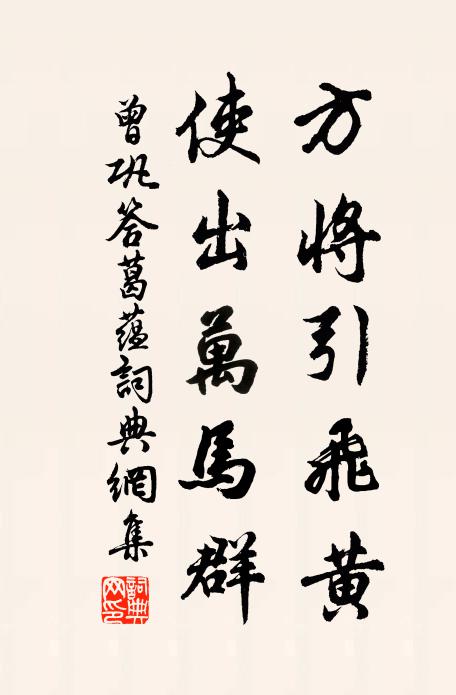 方將引飛黃
使出萬馬群
曾巩答葛蘊詞典網集
詞典
网印